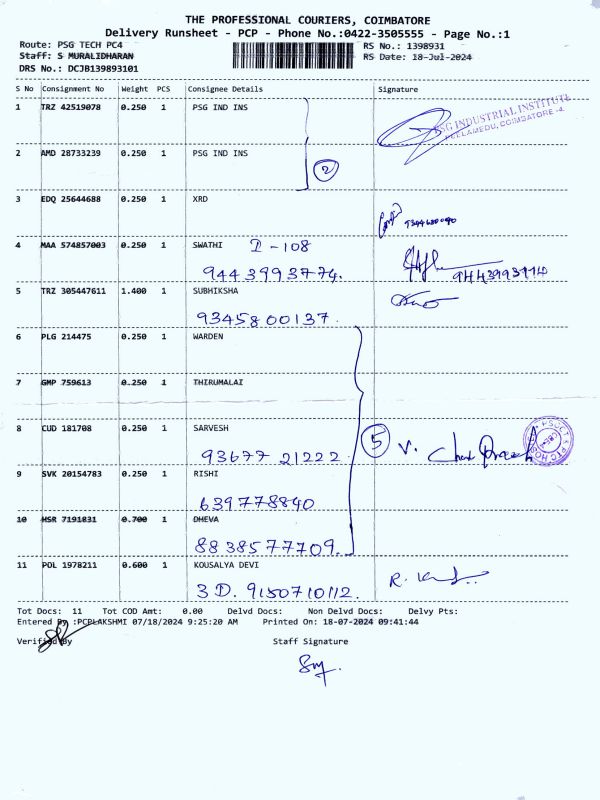 THE PROFESSIONAL COURIERS, COIMBATORE
Delivery Runsheet - PCP - Phone No.:0422-3505555 - Page No.:1
Route: PSG TECH PC4 RS No.: 1398931
Staff: S MURALIDHARAN RS Date: 18-Jul-2024
DRS No.: DCJB139893101
S No Consignment No Weight PCS Consignee Details Signature
1 TRZ 42519078 0.250 1 PSG IND INS
PSG INDUSTRIAL INSTITUTE
PEELAMEDU, COIMBATORE -4
2 AMD 28733239 0.250 1 PSG IND INS
2
3 EDQ 25644688 0.250 1 XRD
4 MAA 574857003 0.250 1 SWATHI D-108
9443993774.
5 TRZ 305447611 1.400 1 SUBHIKSHA
9345800137.
6 PLG 214475 0.250 1 WARDEN
7 GMP 759613 0.250 1 THIRUMALAI
8 CUD 181708 0.250 1 SARVESH
93677 21222 5 V.
9 SVK 20154783 0.250 1 RISHI
639778840
10 HSR 7191831 0.700 1 DHEVA
8838577709.
11 POL 1978211 0.600 1 KOUSALYA DEVI
3 D. 9150710112. R.
Tot Docs: 11 Tot COD Amt: 0.00 Delvd Docs: Non Delvd Docs: Delvy Pts:
Entered By :PCPLAKSHMI 07/18/2024 9:25:20 AM Printed On: 18-07-2024 09:41:44
Verified By Staff Signature